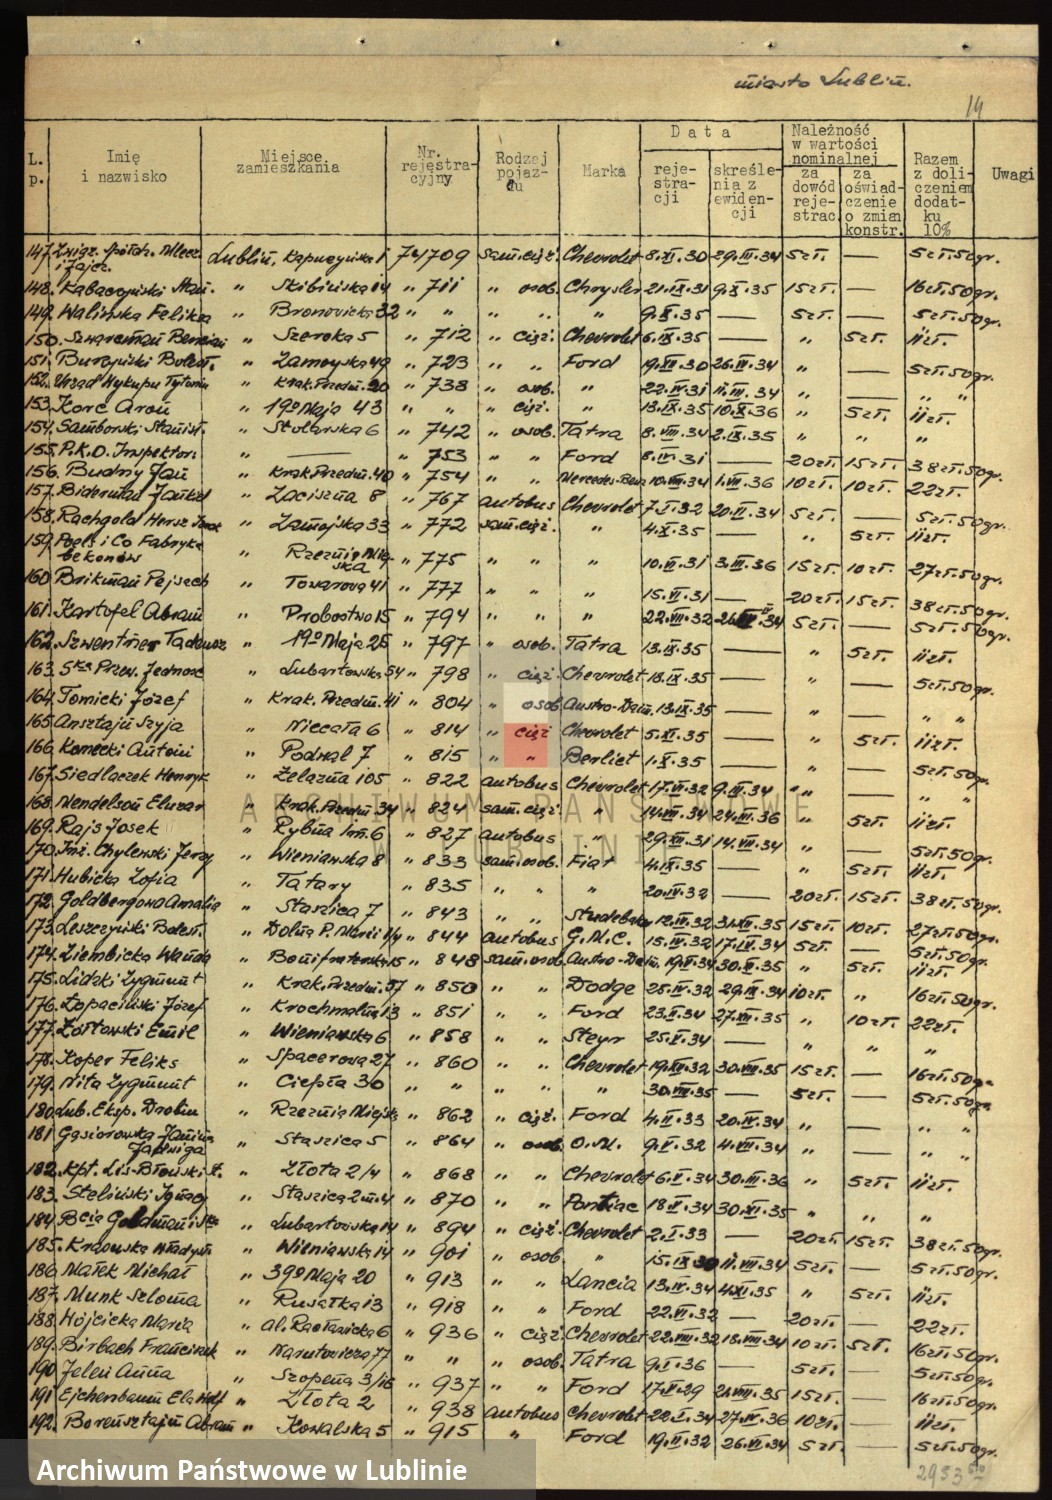 miasto Lublin.
14
L. p. Imię i nazwisko Miejsce zamieszkania Nr. rejestracyjny Rodzaj pojazdu Marka Data rejestracji skreślenia z ewidencji Należność w wartości nominalnej za dowód rejestrac. za oświadczenie o zmian konstr. Razem z doliczeniem dodatku 10% Uwagi
147. Lublin, Kapucyńska 1 74709 sam. cięż. Chevrolet 8.XI.30 29.III.34 5zł. — 5zł.50gr.
148. " 14 " 711 " osob. Chrysler 21.IX.31 9.X.35 15zł. — 16zł.50gr.
149. Walińska Feliksa " Bronowicka 32 " " " " " 9.X.35 — 5zł. — 5zł.50gr.
150. Szwarcman " Szeroka 5 " 712 " cięż. Chevrolet 6.IX.35 — " 5zł. 11zł.
151. Burzyński Bolesł. " Zamoyska 49 " 723 " " Ford 26.VI.34 " — 5zł.50gr.
152. Urząd Wykupu Tytoniu " Krak. Przedm. 20 " 738 " osob. " " — " "
153. Korc Aron " 19º Maja 43 " " " cięż. " 13.IX.35 10.X.36 " 5zł. 11zł.
154. Samborski Stanisł. " Stolarska 6 " 742 " osob. Tatra 8.VIII.34 2.IX.35 " " "
155. P.K.O. Inspektor. " — " 753 " " Ford — 20zł. 15zł. 38zł.50gr.
156. Budny Jan " Krak. Przedm. 40 " 754 " " Mercedes-Benz 10.VIII.34 1.VII.36 10zł. 10zł. 22zł.
157. " Zaciszna 8 " 767 autobus Chevrolet 7.I.32 5zł. — 5zł.50gr.
158. Rachgold Hersz " Zamojska 33 " 772 sam. cięż. " 4.X.35 — " 5zł. 11zł.
159. i Co Fabryka bekonów " Rzeźnia Miejska " 775 " " " 10.IV.31 3.III.36 15zł. 10zł. 27zł.50gr.
160. Brikman Pejsach " Towarowa 41 " 777 " " " 15.VI.31 — 20zł. 15zł. 38zł.50gr.
161. Kartofel Abram " Probostwo 15 " 794 " " " 22.VII.32 5zł. — 5zł.50gr.
162. Tadeusz " 19º Maja 25 " 797 " osob. Tatra 13.IX.35 — " 5zł. 11zł.
163. Ska Przew. Jedność " Lubartowska 54 " 798 " cięż. Chevrolet 18.IX.35 — " — 5zł.50gr.
164. Tomicki Józef " Krak. Przedm. 41 " 804 " osob. Austro-Daim. 13.IX.35 — " — " "
165. Ansztajn Szyja " Niecała 6 " 814 " cięż. Chevrolet 5.XI.35 — " 5zł. 11zł.
166. Antoni " Podwal 7 " 815 " " Berliet 1.X.35 — " — 5zł.50gr.
167. Siedlaczek Henryk " Żelazna 105 " 822 autobus Chevrolet 17.VI.32 9.III.34 " — " "
168. Mendelson " Krak. Przedm. 34 " 824 sam. cięż. " 14.VII.34 24.III.36 " 5zł. 11zł.
169. Rajs Josek " Rybna 6 " 827 autobus " 29.XII.31 14.VII.34 " — 5zł.50gr.
170. Inż. Chylewski Jerzy " Wieniawska 8 " 833 sam. osob. Fiat 4.IX.35 — " 5zł. 11zł.
171. Hubicka Zofia " Tatary " 835 " " " 20.IV.32 — 20zł. 15zł. 38zł.50gr.
172. Goldbergowa Amalia " Staszica 7 " 843 " " Studebaker 12.IV.32 15zł. 10zł. 27zł.50gr.
173. Leszczyński Bolesł. " Dolna P. Marii " 844 autobus G.M.C. 15.IV.32 17.IV.34 5zł. — 5zł.50gr.
174. Ziembicka Wanda " " 848 sam. osob. Austro-Daim. 30.X.35 " 5zł. 11zł.
175. Lidzki Zygmunt " Krak. Przedm. " 850 " " Dodge 25.IV.32 29.IX.34 10zł. " 16zł.50gr.
176. Łopaciński Józef " Krochmalna 13 " 851 " " Ford 23.I.34 27.VII.35 " 10zł. 22zł.
177. Żółtowski Emil " Wieniawska 6 " 858 " " Steyr 25.I.34 — " " "
178. Koper Feliks " Spacerowa 27 " 860 " " Chevrolet 19.VII.32 30.VII.35 15zł. — 16zł.50gr.
179. Nita Zygmunt " Ciepła 30 " " " " " 30.VII.35 — 5zł. — 5zł.50gr.
180. Lub. Eksp. Drobiu " Rzeźnia Miejska " 862 " cięż. Ford 4.I.33 20.IV.34 " — " "
181. Gąsiorowska Janina Jadwiga " Staszica 5 " 864 " osob. O.M. 9.I.32 4.VII.34 " — " "
182. Kpt. Lis-Błoński St. " Złota 2/4 " 868 " " Chevrolet 6.I.34 30.III.36 " 5zł. 11zł.
183. Steliński Ignacy " Staszica 2 m. 4 " 870 " " Pontiac 18.I.34 30.XI.35 " " "
184. Bcia Goldman i Ska " Lubartowska 14 " 894 " cięż. Chevrolet 2.I.33 — 20zł. 15zł. 38zł.50gr.
185. " Wieniawska 14 " 901 " osob. " 5zł. — 5zł.50gr.
186. Małek Michał " 39º Maja 20 " 913 " " Lancia 13.IV.34 4.XI.35 " 5zł. 11zł.
187. Munk Szloma " Rusałka 13 " 918 " " Ford 22.VI.32 — 20zł. — 22zł.
188. Wójcicka Maria " Al. Racławicka 6 " 936 " cięż. Chevrolet 22.VIII.32 18.VIII.34 10zł. 5zł. 16zł.50gr.
189. Birbach Franciszek " Narutowicza 77 " " " osob. Tatra 9.I.36 — 5zł. — 5zł.50gr.
190. Jeleń Anna " Szopena 3/16 " 937 " " Ford 15zł. — 16zł.50gr.
191. Ejchenbaum Ela Wolf " Złota 2 " 938 autobus Chevrolet 22.I.34 27.IV.36 10zł. — 11zł.
192. Borensztajn Abram " Kowalska 5 " 915 " Ford 19.IV.32 26.IV.34 5zł. — 5zł.50gr.
2953
ARCHIWUM PAŃSTWOWE
W LUBLINIE
Archiwum Państwowe w Lublinie